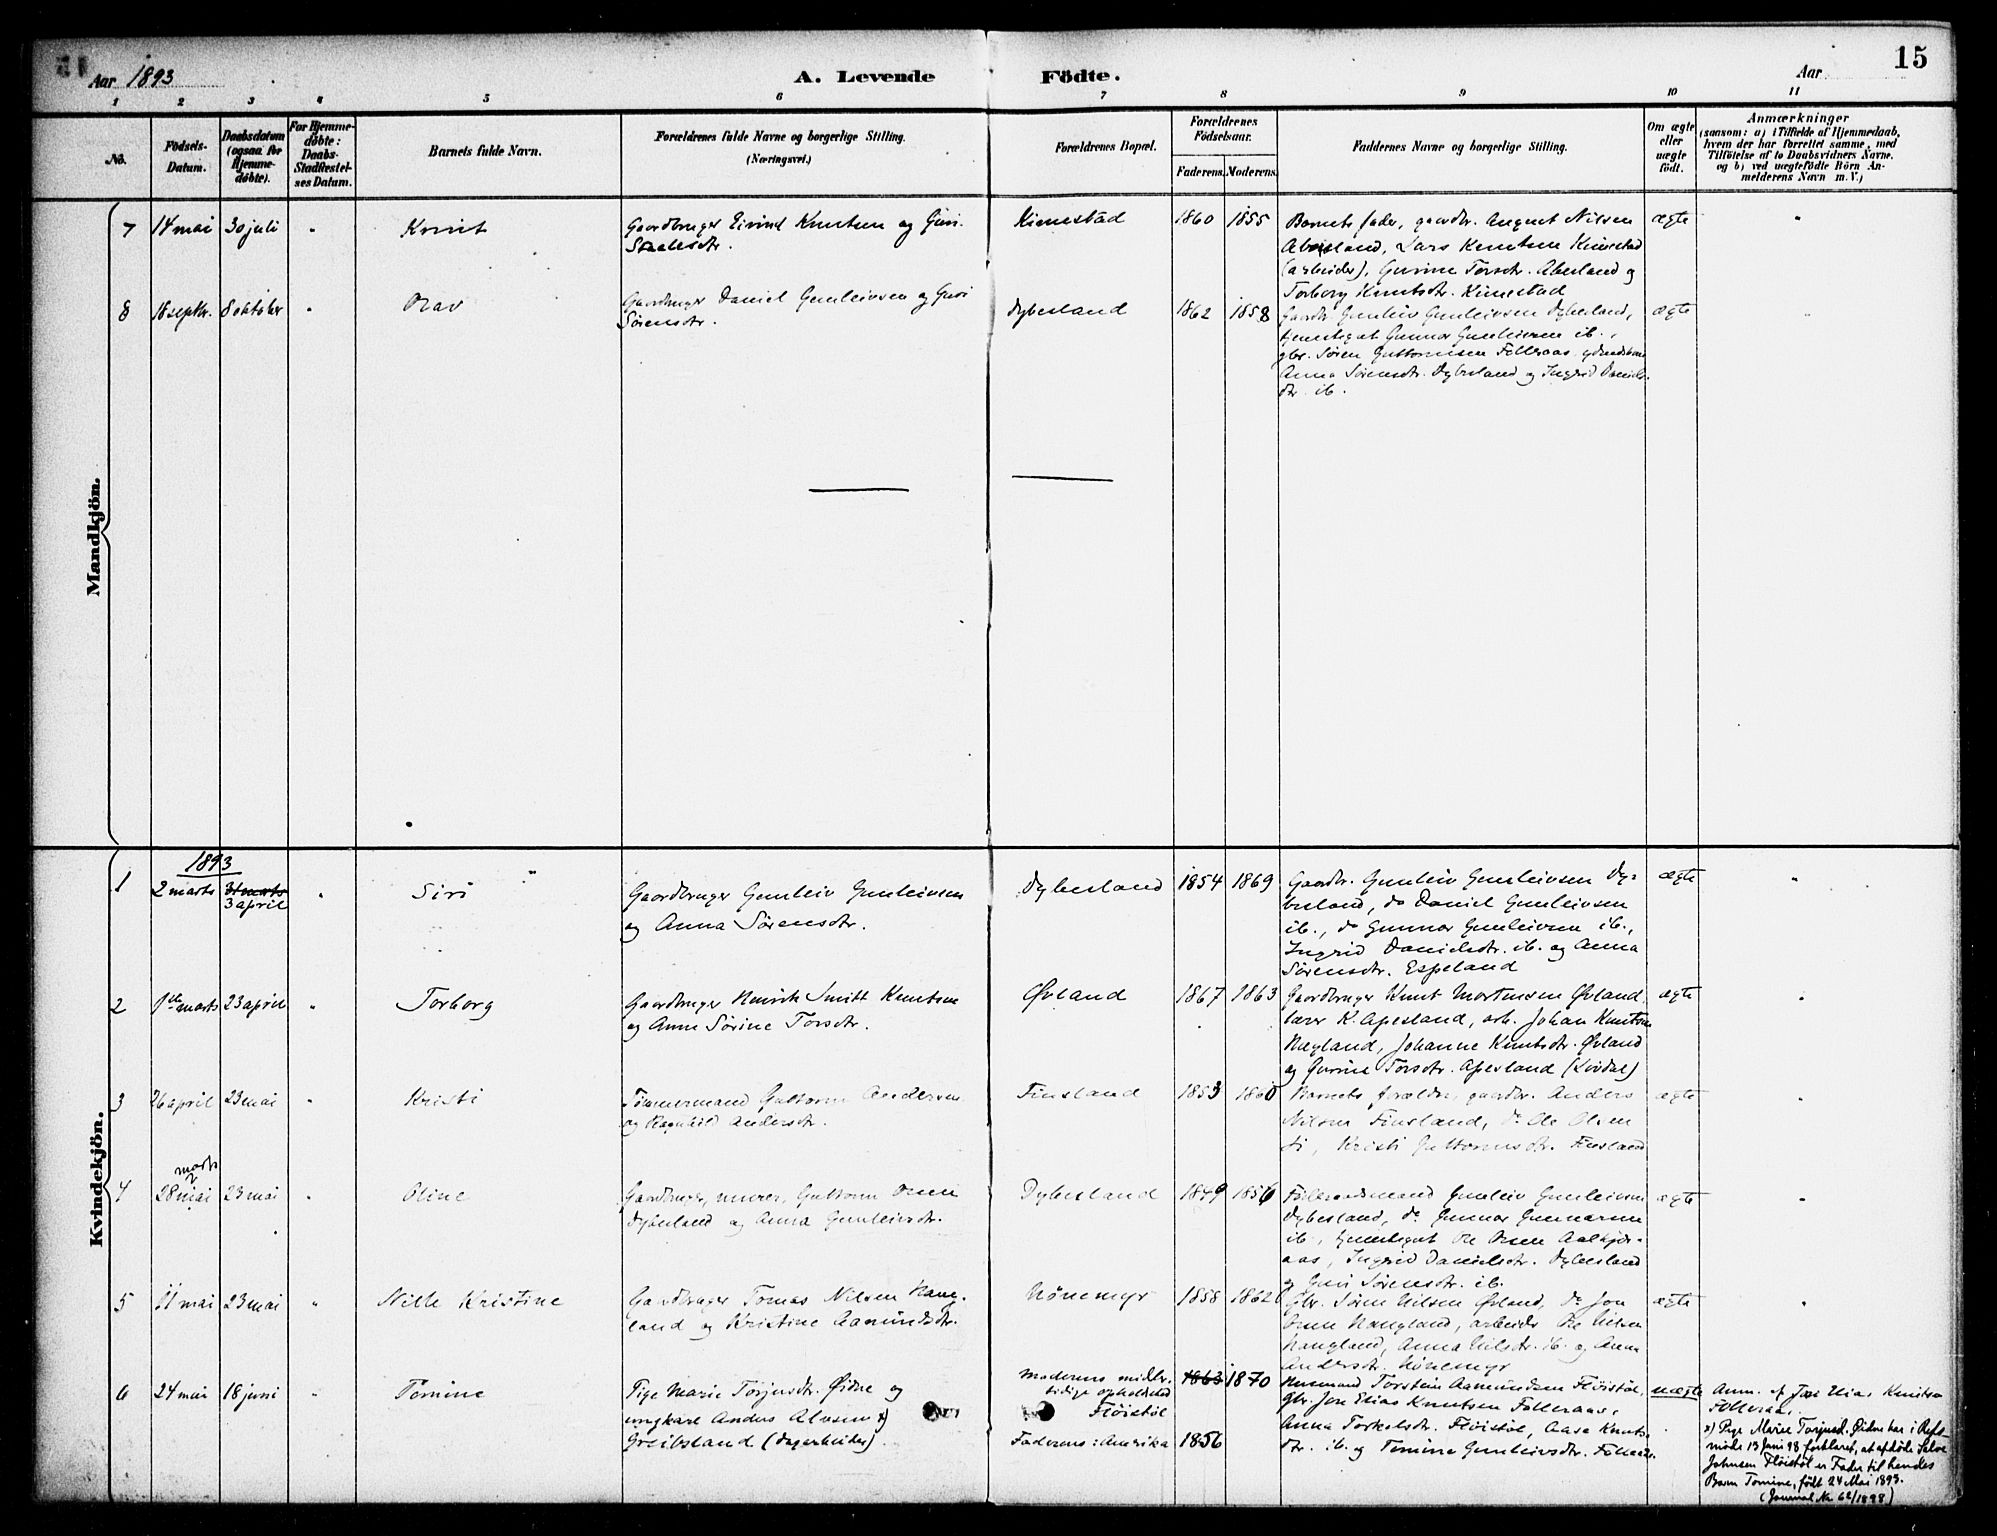 15
Aar 1893
A. Levende Födte.
Aar
1 2 3 4 5 6 7 8 9 10 11
No.
Födsels-Datum.
Daabsdatum (ogsaa for Hjemme-døbte).
For Hjemme-døbte: Daabs-Stadfæstel-ses Datum.
Barnets fulde Navn.
Forældrenes fulde Navne og borgerlige Stilling.
(Næringsvei.)
Forældrenes Bopæl.
Forældrenes Födselsaar.
Faderens. Moderens.
Faddernes Navne og borgerlige Stilling.
Om ægte eller uægte födt.
Anmærkninger
(saasom: a) i Tilfælde af Hjemmedaab,
hvem der har forrettet samme, med
Tilföielse af to Daabsvidners Navne,
og b) ved uægtefödte Börn An-
melderens Navn m. V.)
Mandkjön.
7 14 mai 30 juli " Knut
Gaardbruger Eivind Knutsen og Guri
Staalesdtr.
Kimestad 1860 1855
Barnets fader, gaardbr. August Nilsen
Abesland, Lars Knutsen Kimestad
(arbeider), Gurine Torsdtr. Abesland og
Torborg Knutsdtr. Kimestad
ægte "
8 18 septbr. 8 oktober " Olav
Gaardbruger Daniel Gunleivsen og Guri
Sörensdtr.
Dybesland 1862 1858
Gaardbr. Gunleiv Gunleivsen Dybesland,
tjenestegut Gunnar Gunleivsen ib.,
gbr. Søren Guttormsen Følleraas
Anna Sörensdtr. Dybesland og Ingrid Daniels-
dtr. ib.
ægte "
Kvindekjön.
1893
1 2 marts 31 marts 3 april " Siri
Gaardbruger Gunleiv Gunleivsen
og Anna Sørensdtr.
Dybesland 1854 1869
Gaardbr. Gunleiv Gunleivsen Dy-
besland, do Daniel Gunleivsen
ib., do Gunnar Gunleivsen ib.,
Ingrid Danielsdtr. ib. og Anna
Sørensdtr. Espeland
ægte "
2 1ste marts 23 april " Torborg
Gaardbruger Henrik Smitt Knutsen
og Anne Sørine Torsdtr.
Øvland 1867 1863
Gaardbruger Knut Mortensen Øvland,
lærer K. Apesland, arb. Johan Knutsen
Hægland, Johanne Knutsdtr. Øvland
og Gurine Torsdtr. Apesland (Livdal)
ægte "
3 26 april 23 mai " Kristi
Tømmermand Guttorm Andersen
og Ragnhild Andersdtr.
Finsland 1853 1860
Barnets forældre, gaardbr. Anders
Nilsen Finsland, do Ole Olsen
Kristi Guttormsdtr. Finsland
ægte "
4 marts 28 mai 23 mai " Oline
Gaardbruger, murer, Guttorm Olsen
Dybesland og Anna Gunleivsdtr.
Dybesland 1849 1856
Føderaadsmand Gunleiv Gunleivsen
Dybesland, do Gunnar Gunnarsen
ib., tjenestegut Ole Olsen Aalkjær-
aas, Ingrid Danielsdtr. Dybesland
og Guri Sørensdtr. ib.
ægte "
5 11 mai 23 mai " Nille Kristine
Gaardbruger Tomas Nilsen Haug-
land og Kristine Aamundsdtr.
Hönemyr 1858 1862
Gbr. Søren Nilsen Øvland, do Jon
Olsen Haugland, arbeider Ole Nilsen
Haugland, Anna Nilsdtr. ib. og Anna
Andersdtr. Hönemyr
ægte "
6 24 mai 18 juni " Tomine
Pige Marie Torjusdtr. Øidne og
ungkarl Anders Alvsen x)
Greibsland (dagarbeider).
Moderens midler-
tidige opholdssted
Fløistøl
Faderens: Amerika
1863 1870
1856
Husmand Torstein Aamundsen Fløistøl,
gbr. Jon Elias Knutsen Følleraas,
Anna Torkelsdtr. Fløistøl, Aase Knuts-
dtr. ib. og Tomine Gunleivsdtr. Følleraas.
uægte
Anm. af Jon Elias Knutsen
Følleraas.
x) Pige Marie Torjusd. Øidne har i Rets-
møde 13 Juni 98 forklaret, at afdøde Salve
Johnsen Fløistøl er Fader til hendes
Barn Tomine, født 24 Mai 1893.
(Journal No 62/1898)